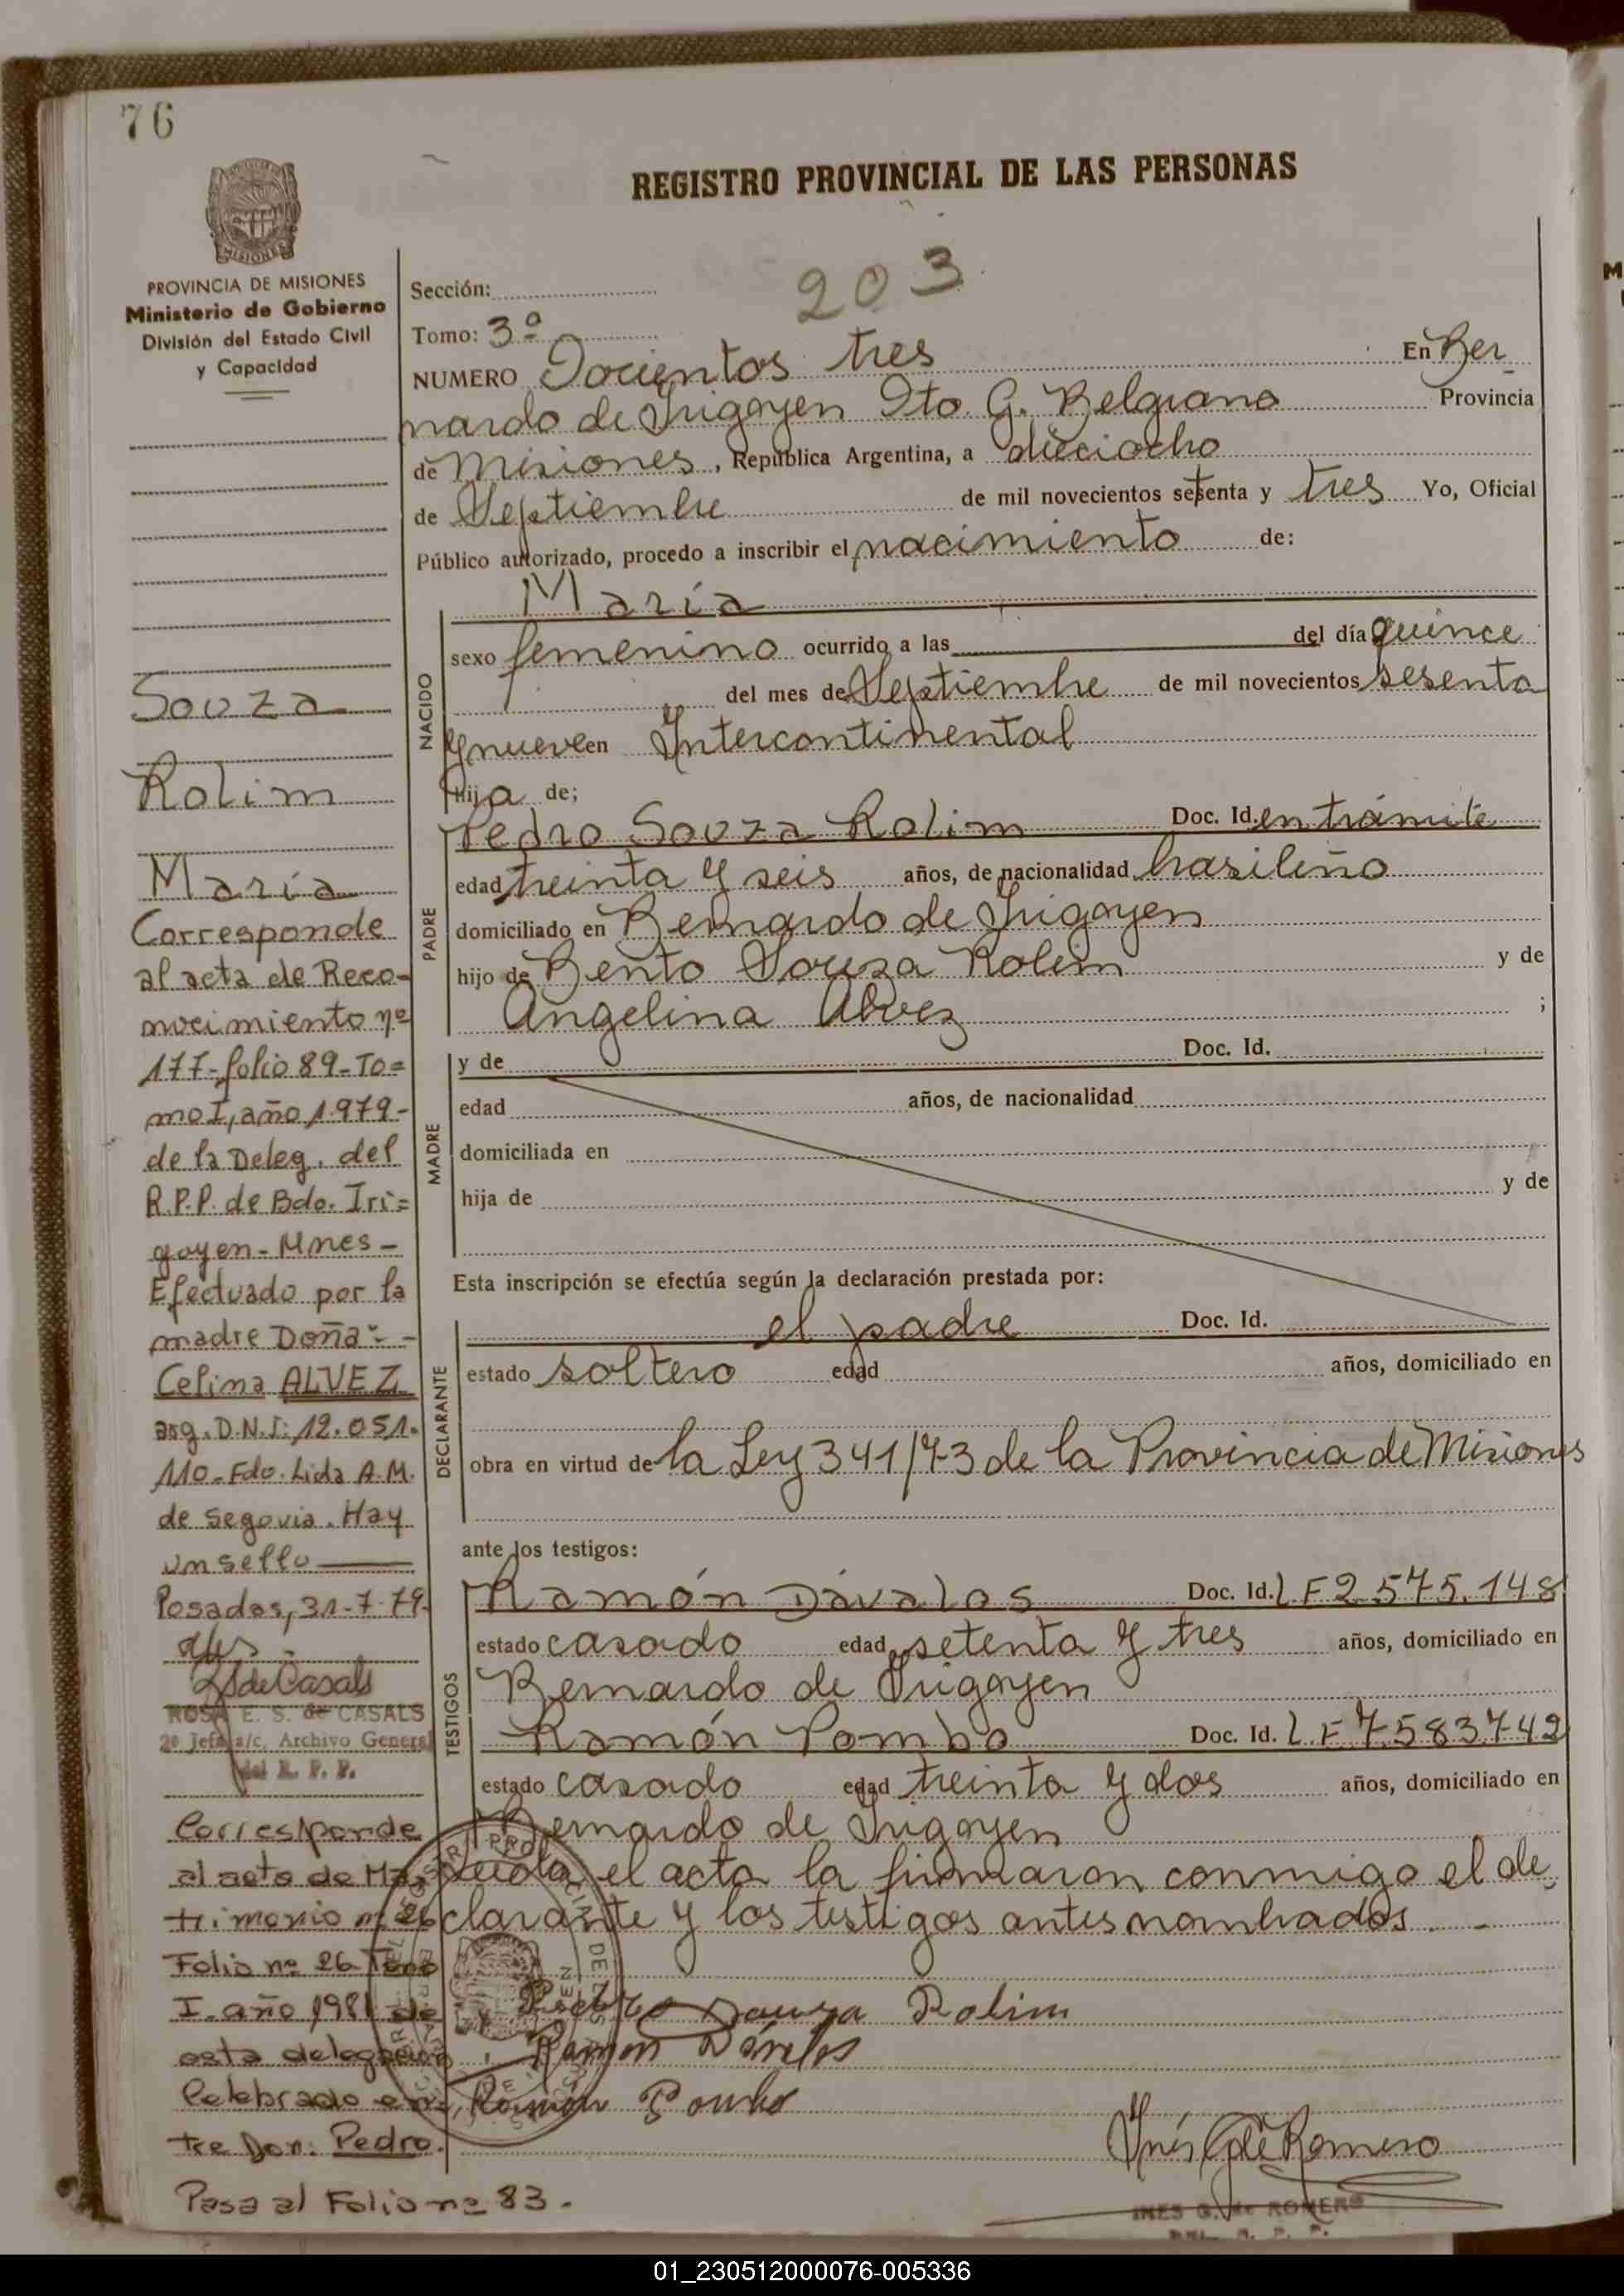 76
REGISTRO PROVINCIAL DE LAS PERSONAS
MISIONES
PROVINCIA DE MISIONES
Ministerio de Gobierno
División del Estado Civil
y Capacidad
Souza
Rolim
María
Corresponde
al acta de Reco-
nocimiento nº
177-folio 89-To=
mo I, año 1.979-
de la Deleg. del
R.P.P. de Bdo. Iri=
goyen-Mnes-
Efectuado por la
madre Doña:-
Celina ALVEZ
arg. D.N.I: 12.051.
110-Fdo. Lida A.M.
de Segovia. Hay
un sello
Posadas, 31-7-79-
ROSA E. S. de CASALS
2º Jefe a/c. Archivo General
del R. P. P.
Corresponde
al acta de Ma-
trimonio nº 26
Folio nº 26 Tomo
I. año 1981 de
esta delegación
Celebrado en-
tre Don: Pedro.
Pasa al Folio nº 83.
203
Sección:
Tomo: 3º
NUMERO Docientos tres En Ber
nardo de Irigoyen Dto. G. Belgrano Provincia
de Misiones, República Argentina, a dieciocho
de Septiembre de mil novecientos setenta y tres Yo, Oficial
Público autorizado, procedo a inscribir el nacimiento de:
NACIDO
María
sexo femenino ocurrido a las del día quince
del mes de Septiembre de mil novecientos sesenta
y nueve en Intercontinental
hija de;
PADRE
Pedro Souza Rolim Doc. Id. en trámite
edad treinta y seis años, de nacionalidad brasileño
domiciliado en Bernardo de Irigoyen
hijo de Bento Souza Rolim y de
Angelina Alvez ;
MADRE
y de Doc. Id.
edad años, de nacionalidad
domiciliada en
hija de y de
Esta inscripción se efectúa según la declaración prestada por:
DECLARANTE
el padre Doc. Id.
estado soltero edad años, domiciliado en
obra en virtud de la Ley 341/73 de la Provincia de Misiones
ante los testigos:
TESTIGOS
Ramón Dávalos Doc. Id. L E 2.575.148
estado casado edad setenta y tres años, domiciliado en
Bernardo de Irigoyen
Ramón Pombo Doc. Id. L.E 7583742
estado casado edad treinta y dos años, domiciliado en
Bernardo de Irigoyen
Leída el acta la firmaron conmigo el de
clarante y los testigos antes nombrados.-
Pedro Souza Rolim
Ramon Dávalos
Ramón Pombo
Inés G de Romero
INES G. de ROMERO
01_230512000076-005336